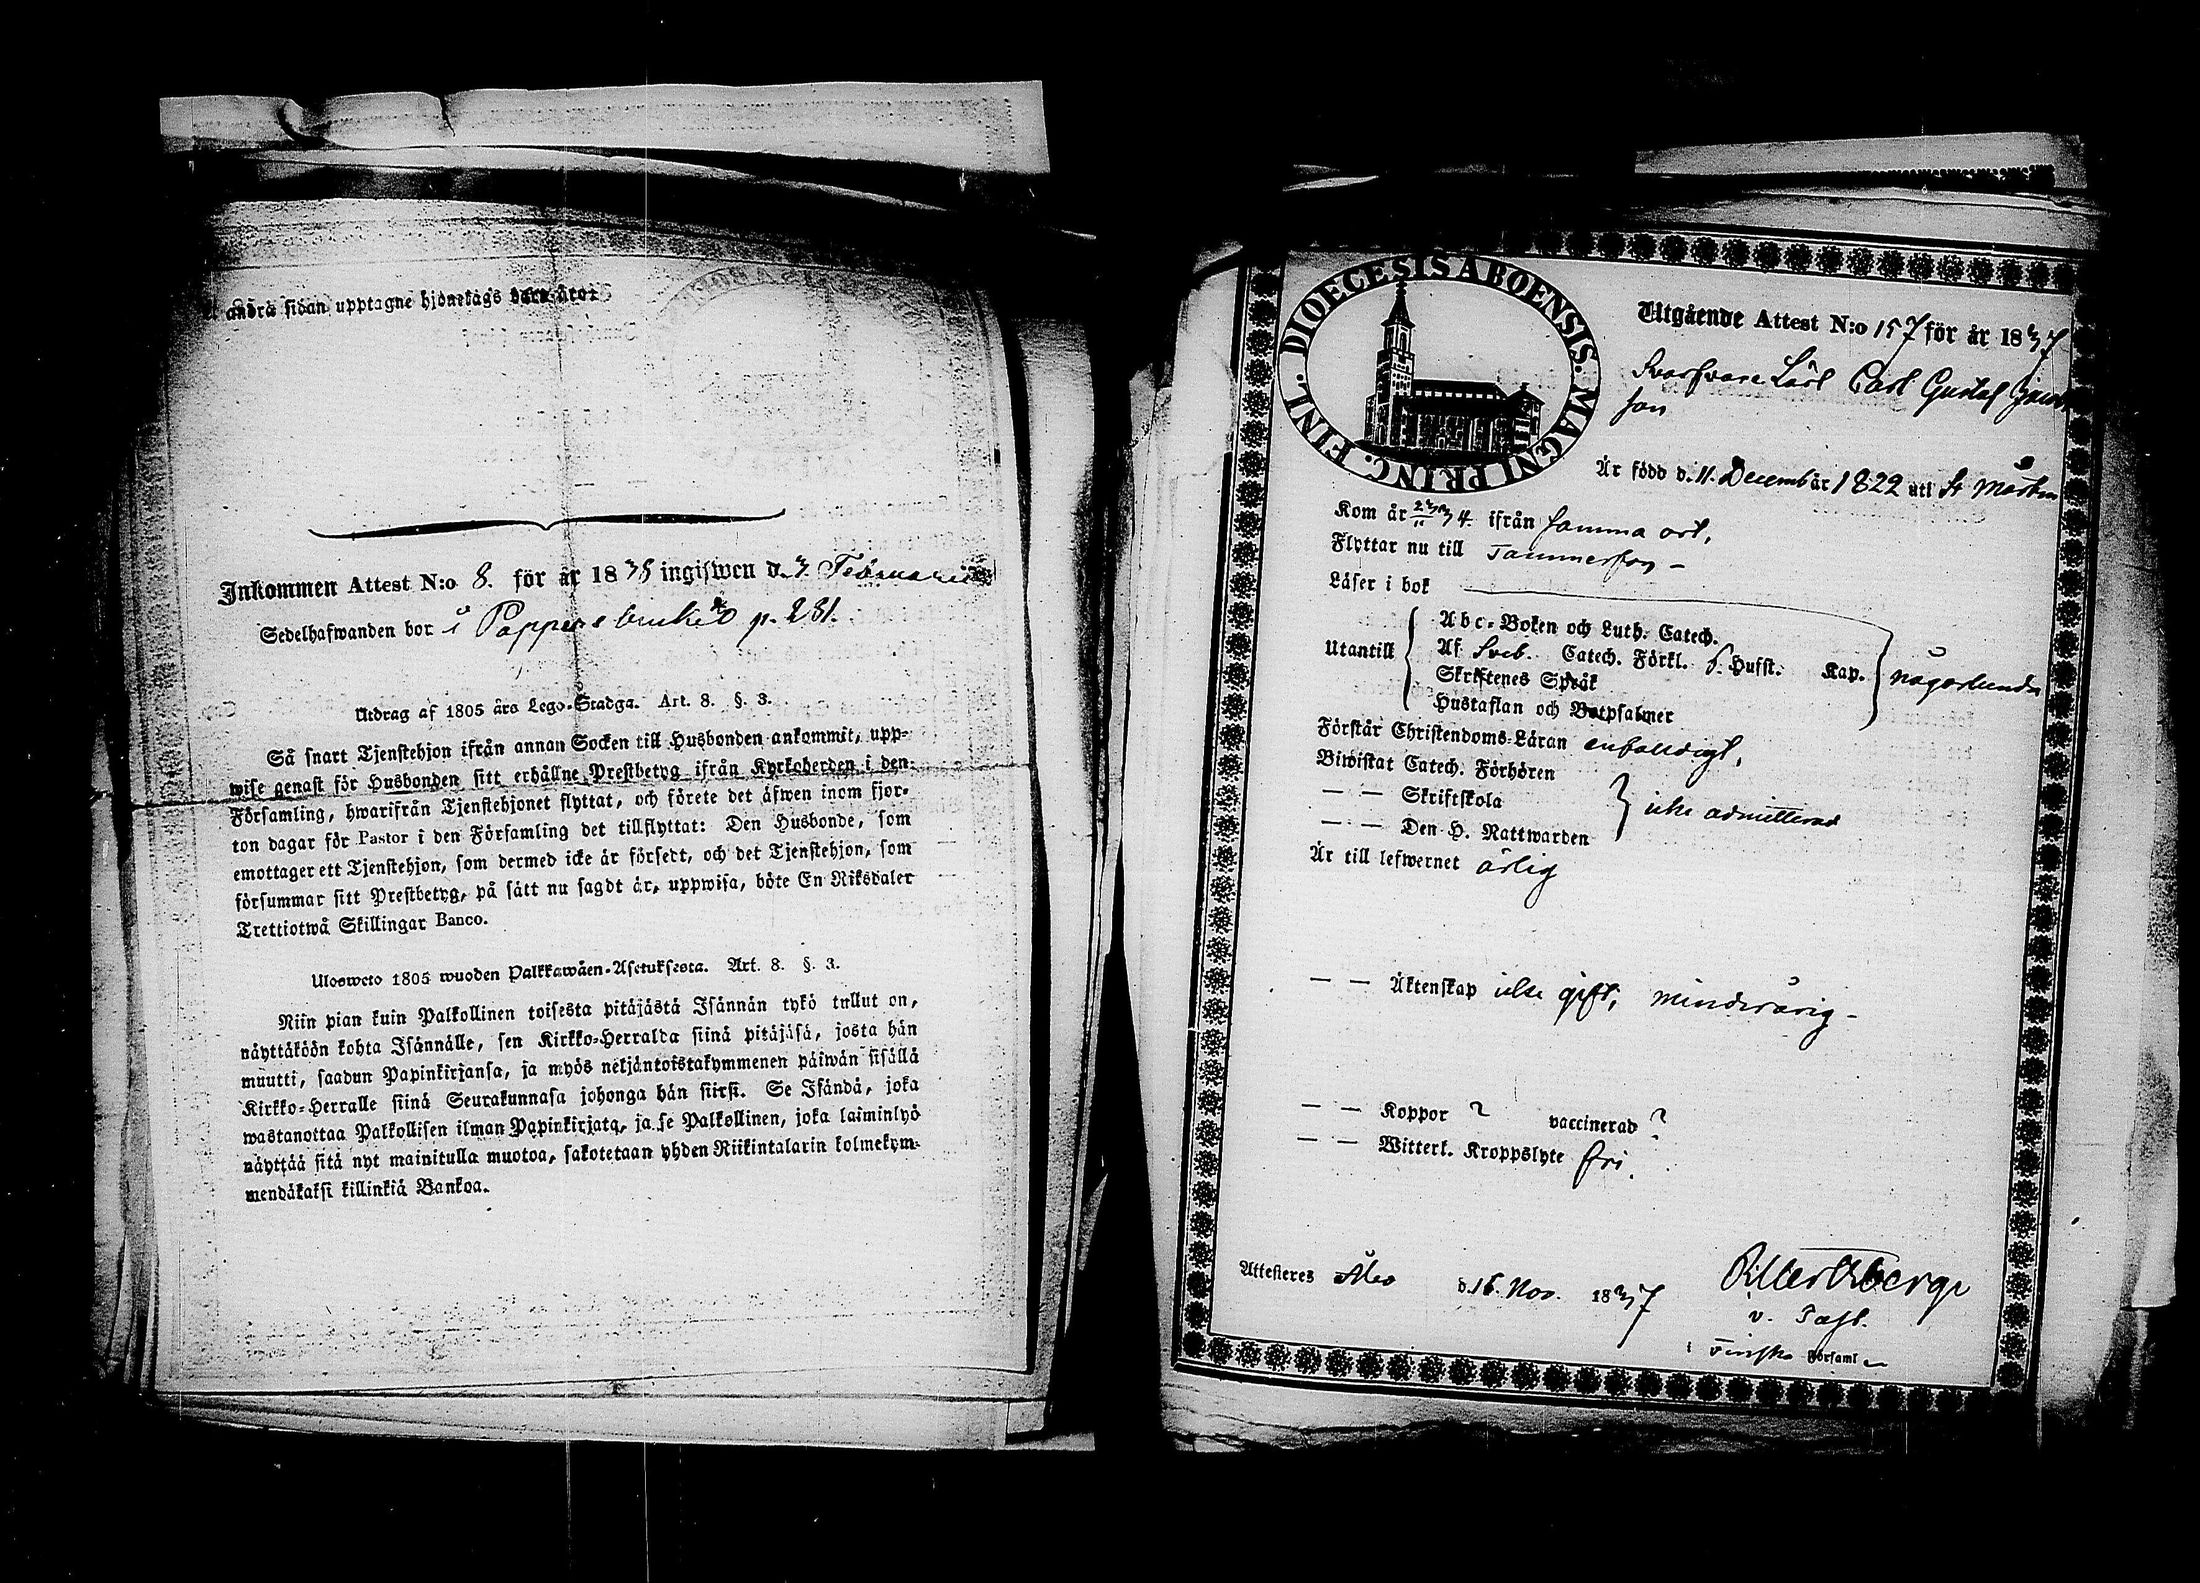 andra sidan upptagne hjonelags barn äro:
Inkommen Attest N:o 8. för år 1838 ingifwen d. 3. Februarii
Sedelhafwanden bor å Pappersbruket p. 281.
Utdrag af 1805 års Lego-Stadga. Art. 8. §. 3.
Så snart Tjenstehjon ifrån annan Socken till Husbonden ankommit, upp-
wise genast för Husbonden sitt erhållne Prestbetyg ifrån Kyrkoherden i den
Församling, hwarifrån Tjenstehjonet flyttat, och förete det äfwen inom fjor-
ton dagar för Pastor i den Församling det tillflyttat: Den Husbonde, som
emottager ett Tjenstehjon, som dermed icke är försedt, och det Tjenstehjon, som
försummar sitt Prestbetyg, på sätt nu sagdt är, uppwisa, böte En Riksdaler
Trettiotwå Skillingar Banco.
Ulosweto 1805 wuoden Palkkawäen-Asetuksesta. Art. 8. §. 3.
Niin pian kuin Palkollinen toisesta pitäjästä Isännän tykö tullut on,
näyttäköön kohta Isännälle, sen Kirkko-Herralda siinä pitäjäsä, josta hän
muutti, saadun Papinkirjansa, ja myös neljäntoistakymmenen päiwän sisällä
Kirkko-Herralle siinä Seurakunnasa johonga hän siirsi. Se Isändä, joka
wastanottaa Palkollisen ilman Papinkirjata, ja se Palkollinen, joka laiminlyö
näyttää sitä nyt mainitulla muotoa, sakotetaan yhden Riikintalarin kolmekym-
mendäkaksi killinkiä Bankoa.
DIOECESIS ABOENSIS. MAGNI PRINC. FINL.
Utgående Attest N:o 157 för år 1837
Carl Gustaf
son
Är född d. 11. Decemb år 1822 uti St Mårten
Kom år 34 ifrån samma ort,
Flyttar nu till Tammerfors –
Läser i bok
Abc-Boken och Luth. Catech.
Utantill Af Sveb. Catech. Förkl. Hufst. Kap. någorlunda
Skriftenes Språk
Hustaflan och Botpsalmer
Förstår Christendoms-Läran enfaldigt,
Biwistat Catech. Förhören
— — Skriftskola icke admitterad
— — Den H. Nattwarden
Är till lefwernet ärlig
— — Äktenskap icke gift, minderårig –
— — Koppor ? vaccinerad ?
— — Witterl. Kroppslyte fri.
Attesteres Åbo d. 16. Nov. 1837
v. Past.
i Finska Församl